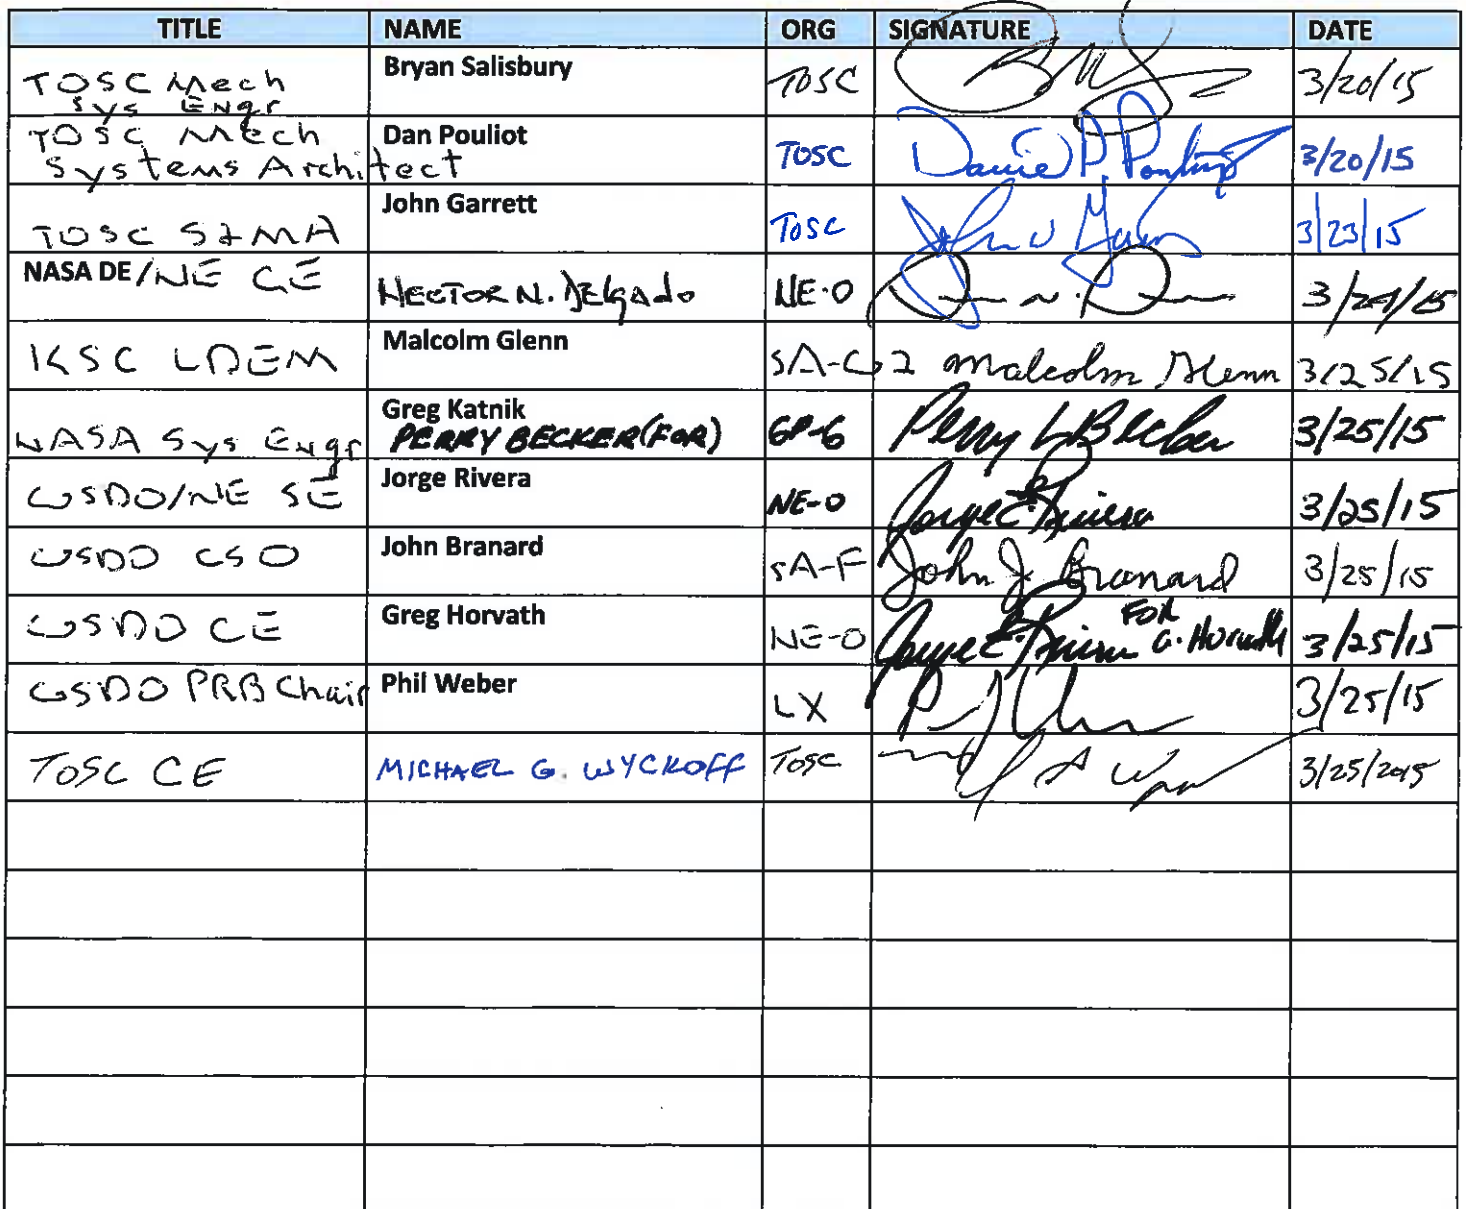 TITLE NAME ORG SIGNATURE DATE
TOSC Mech Sys Engr Bryan Salisbury TOSC 3/20/15
TOSC Mech Systems Architect Dan Pouliot TOSC Daniel P. Pouliot 3/20/15
TOSC S&MA John Garrett TOSC John W Garrett 3/23/15
NASA DE/NE CE HECTOR N. DELGADO NE-O 3/24/15
KSC LDEM Malcolm Glenn SA-G2 Malcolm Glenn 3/25/15
NASA Sys Engr Greg Katnik
PERRY BECKER (FOR) GP-G Perry L Becker 3/25/15
GSDO/NE SE Jorge Rivera NE-O Jorge E. Rivera 3/25/15
GSDO CSO John Branard SA-F John J Branard 3/25/15
GSDO CE Greg Horvath NE-O Jorge E. Rivera FOR G. Horvath 3/25/15
GSDO PRB Chair Phil Weber LX 3/25/15
TOSC CE MICHAEL G. WYCKOFF TOSC 3/25/2015